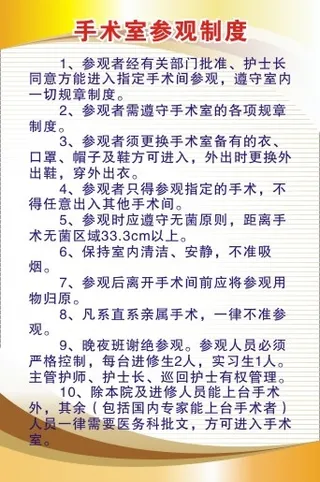 手术室参观制度
1、参观者经有关部门批准、护士长
同意方能进入指定手术间参观，遵守室内
一切规章制度。
2、参观者需遵守手术室的各项规章
制度。
3、参观者须更换手术室备有的衣、
口罩、帽子及鞋方可进入，外出时更换外
出鞋，穿外出衣。
4、参观者只得参观指定的手术，不
得任意出入其他手术间。
5、参观时应遵守无菌原则，距离手
术无菌区域33.3cm以上。
6、保持室内清洁、安静，不准吸
烟。
7、参观后离开手术间前应将参观用
物归原。
8、凡系直系亲属手术，一律不准参
观。
9、晚夜班谢绝参观。参观人员必须
严格控制，每台进修生2人，实习生1人。
主管护师、护士长、巡回护士有权管理。
10、除本院及进修人员能上台手术
外，其余（包括国内专家能上台手术者）
人员一律需要医务科批文，方可进入手术
室。